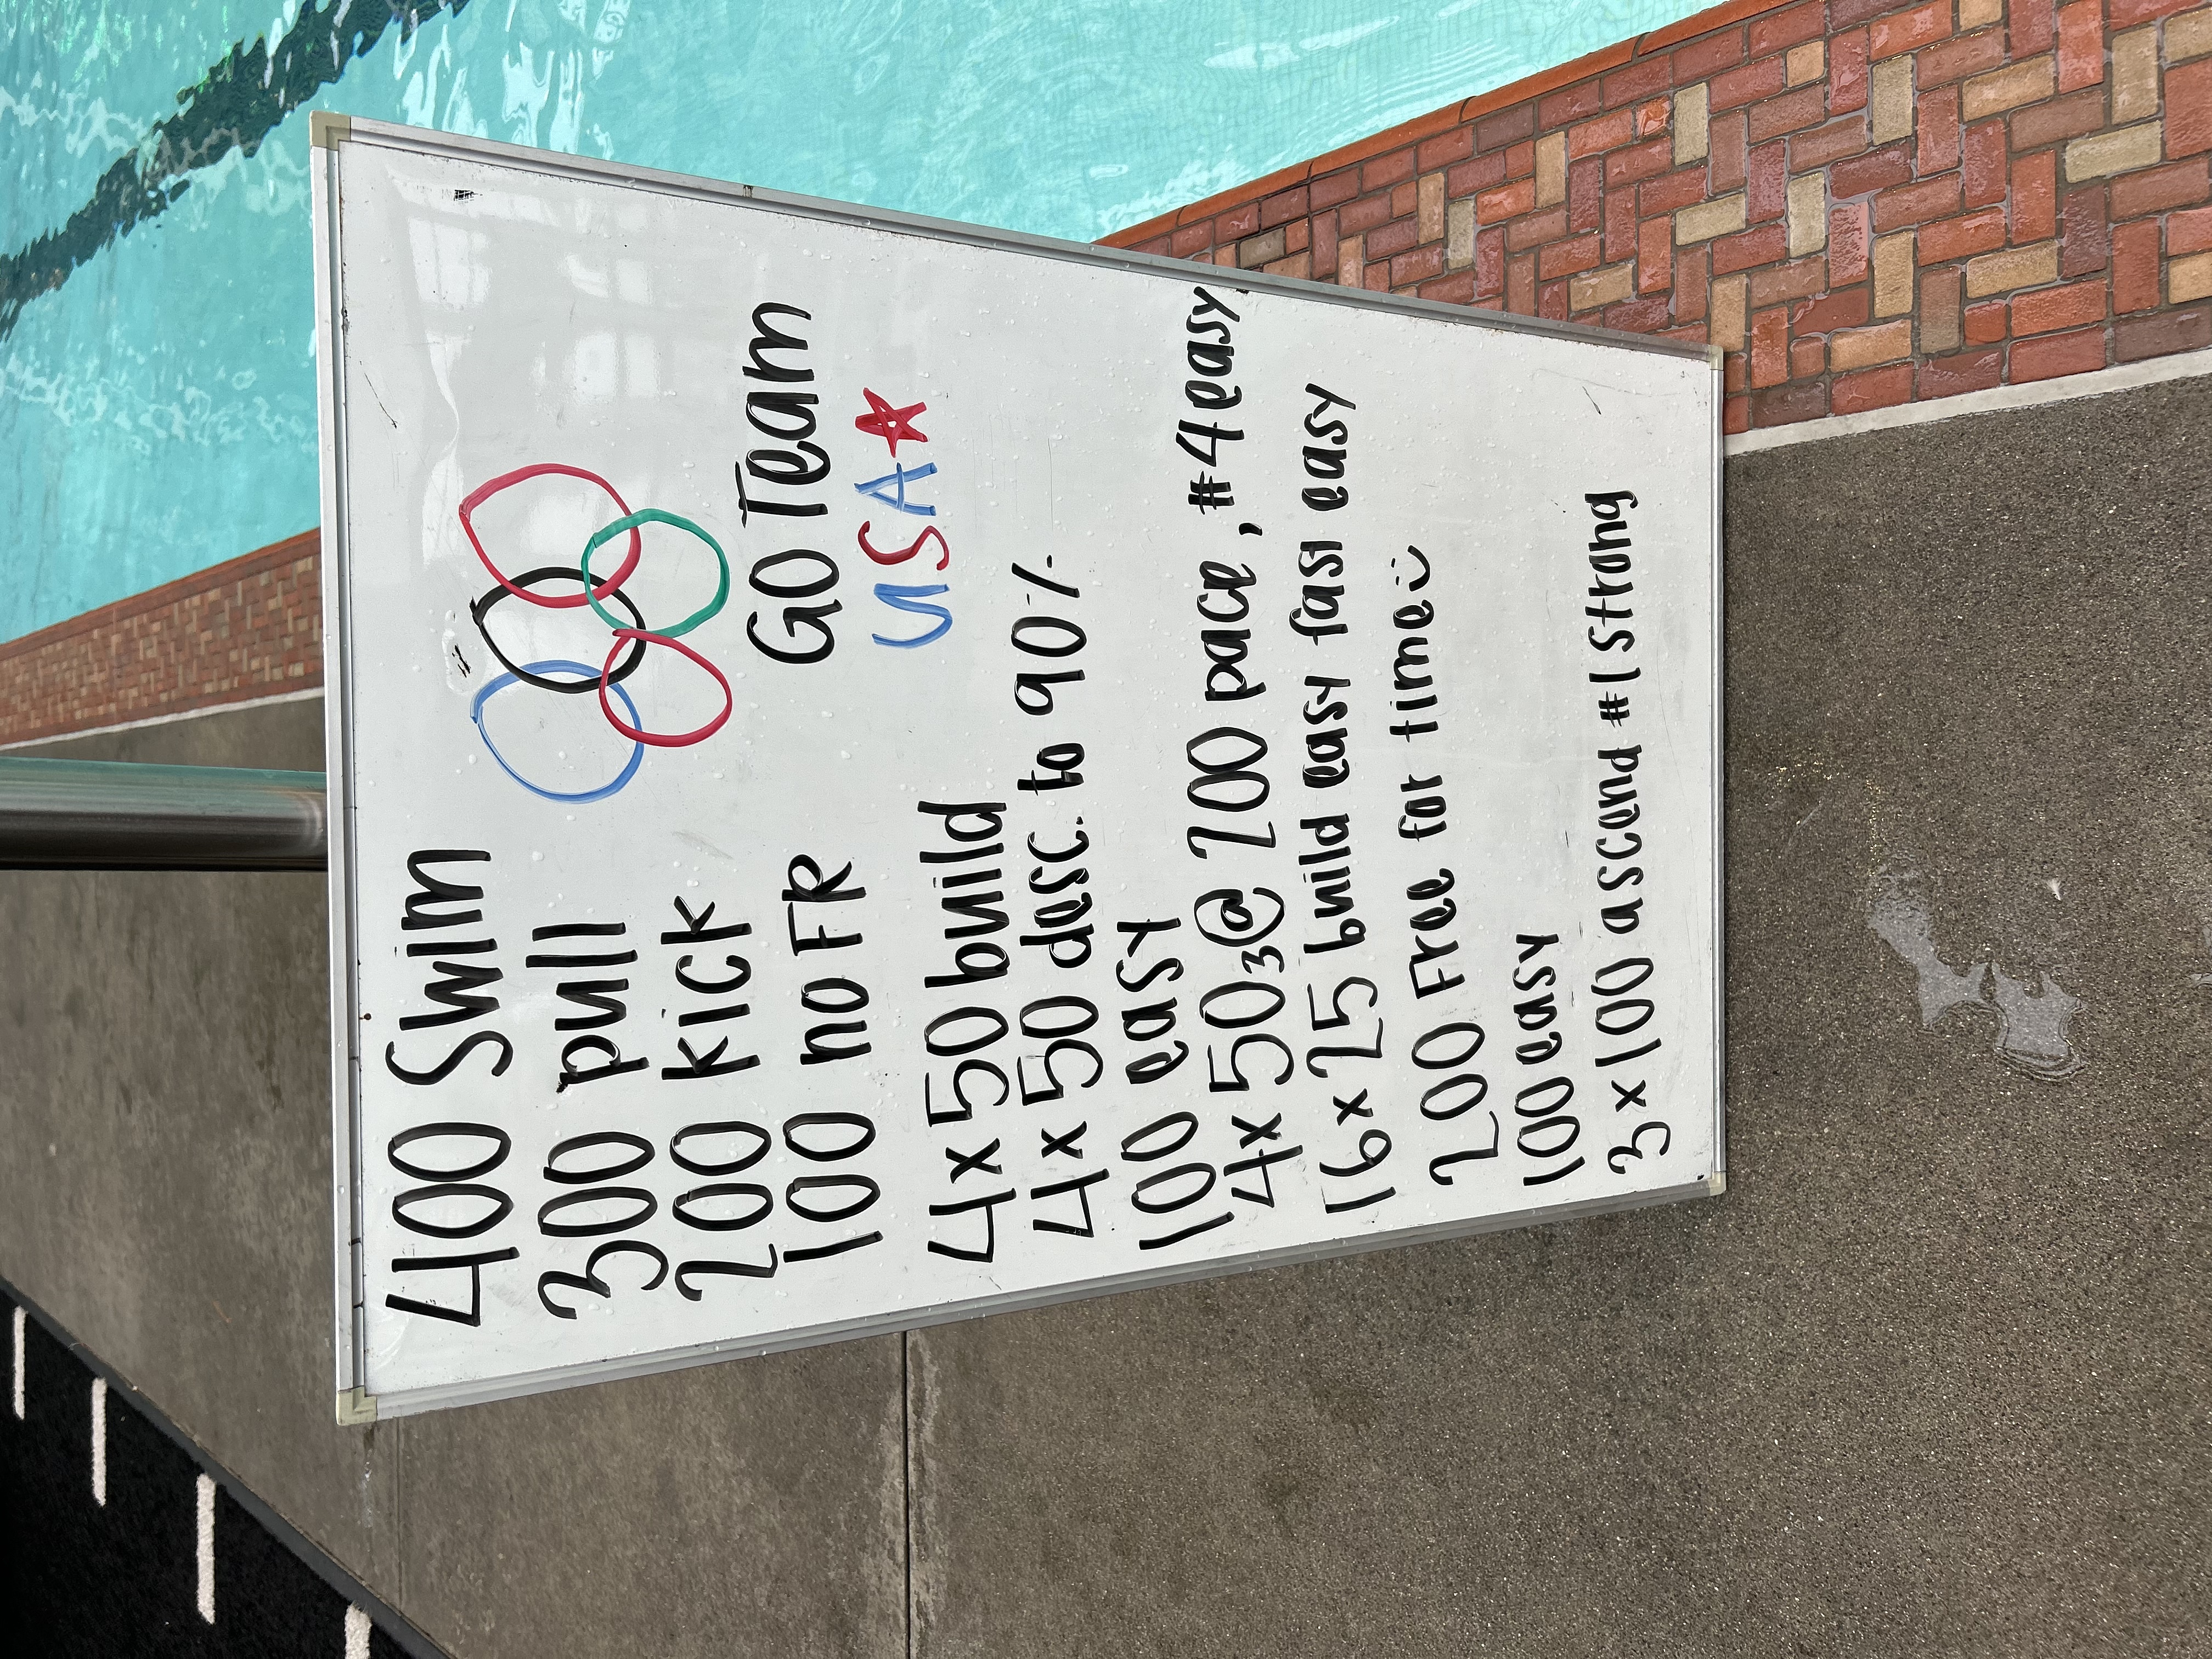 400 Swim
300 pull
200 kick
100 no FR
GO Team
USA
4x50 build
4x50 desc. to 90%
100 easy
4x50 3@ 200 pace, #4 easy
16x25 build easy fast easy
200 Free for time
100 easy
3x100 ascend #1 strong